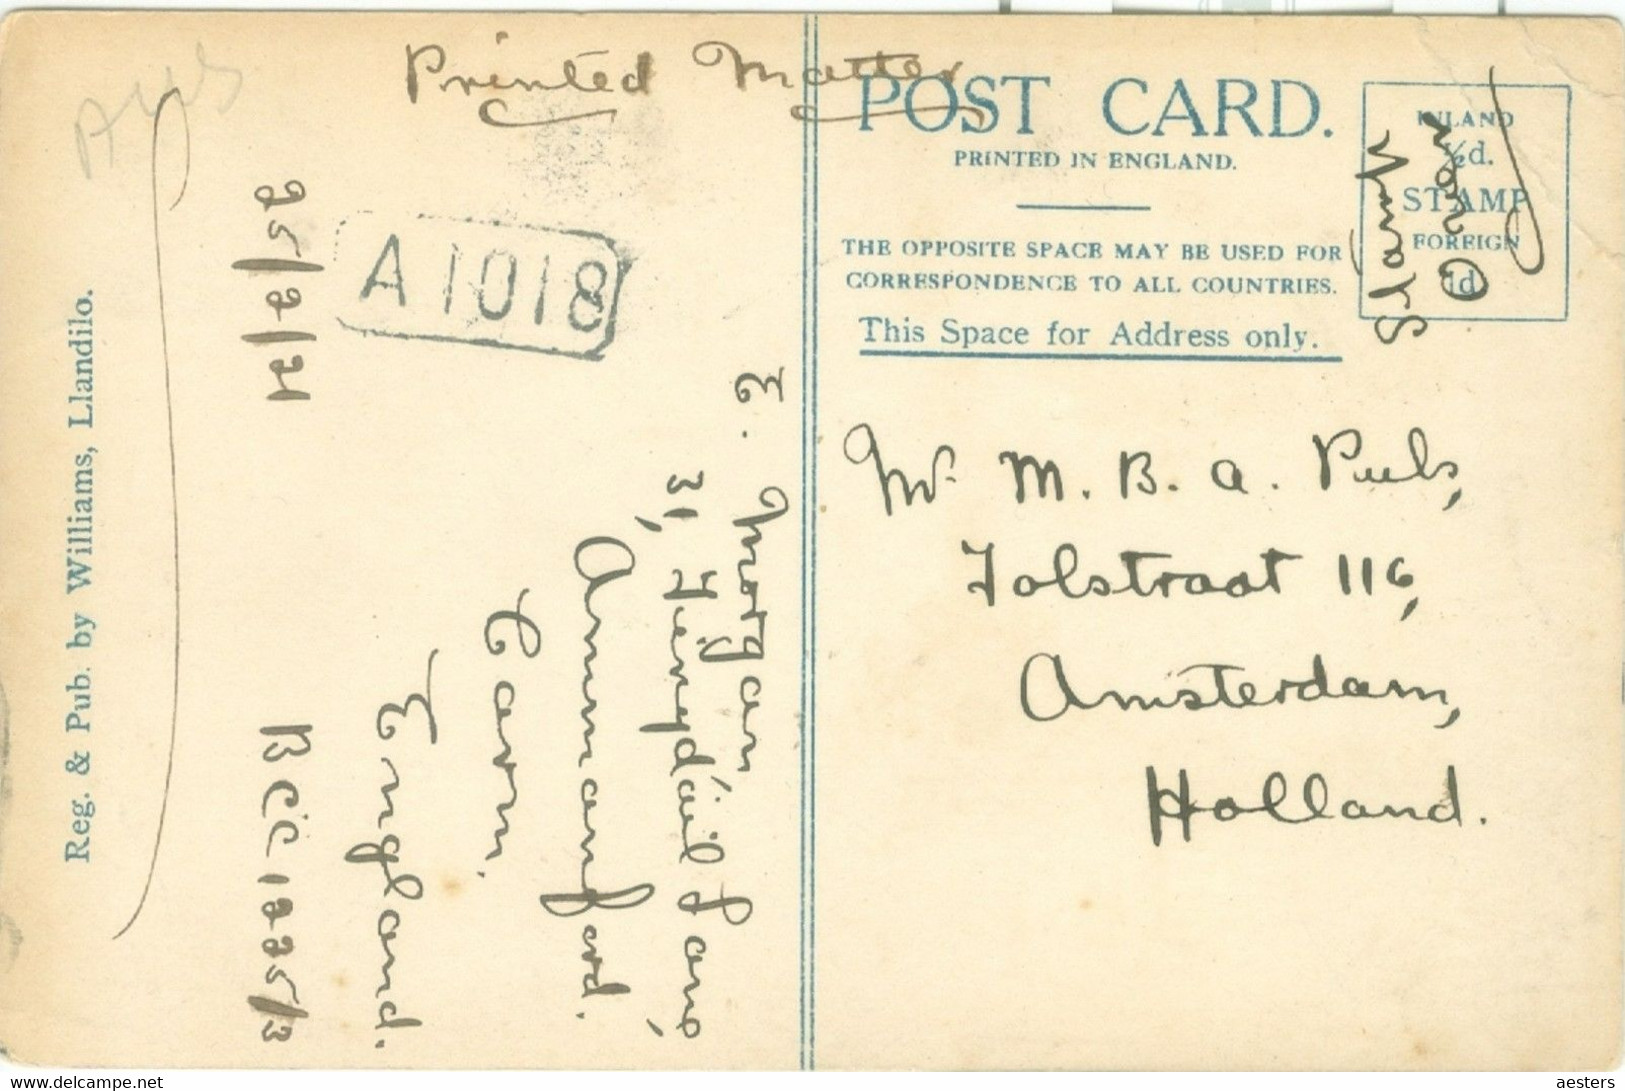 Printed Matter
POST CARD.
PRINTED IN ENGLAND.
THE OPPOSITE SPACE MAY BE USED FOR
CORRESPONDENCE TO ALL COUNTRIES.
This Space for Address only.
INLAND
½d.
STAMP
FOREIGN
1d.
Stamp
Over
Mr. M. B. A. Puls,
Tolstraat 116,
Amsterdam,
Holland.
E. Morgan
31, Tirydail Lane,
Ammanford.
Carm.
England.
A1018
25/2/21
BCC 1225/3
Reg. & Pub. by Williams, Llandilo.
www.delcampe.net
aesters